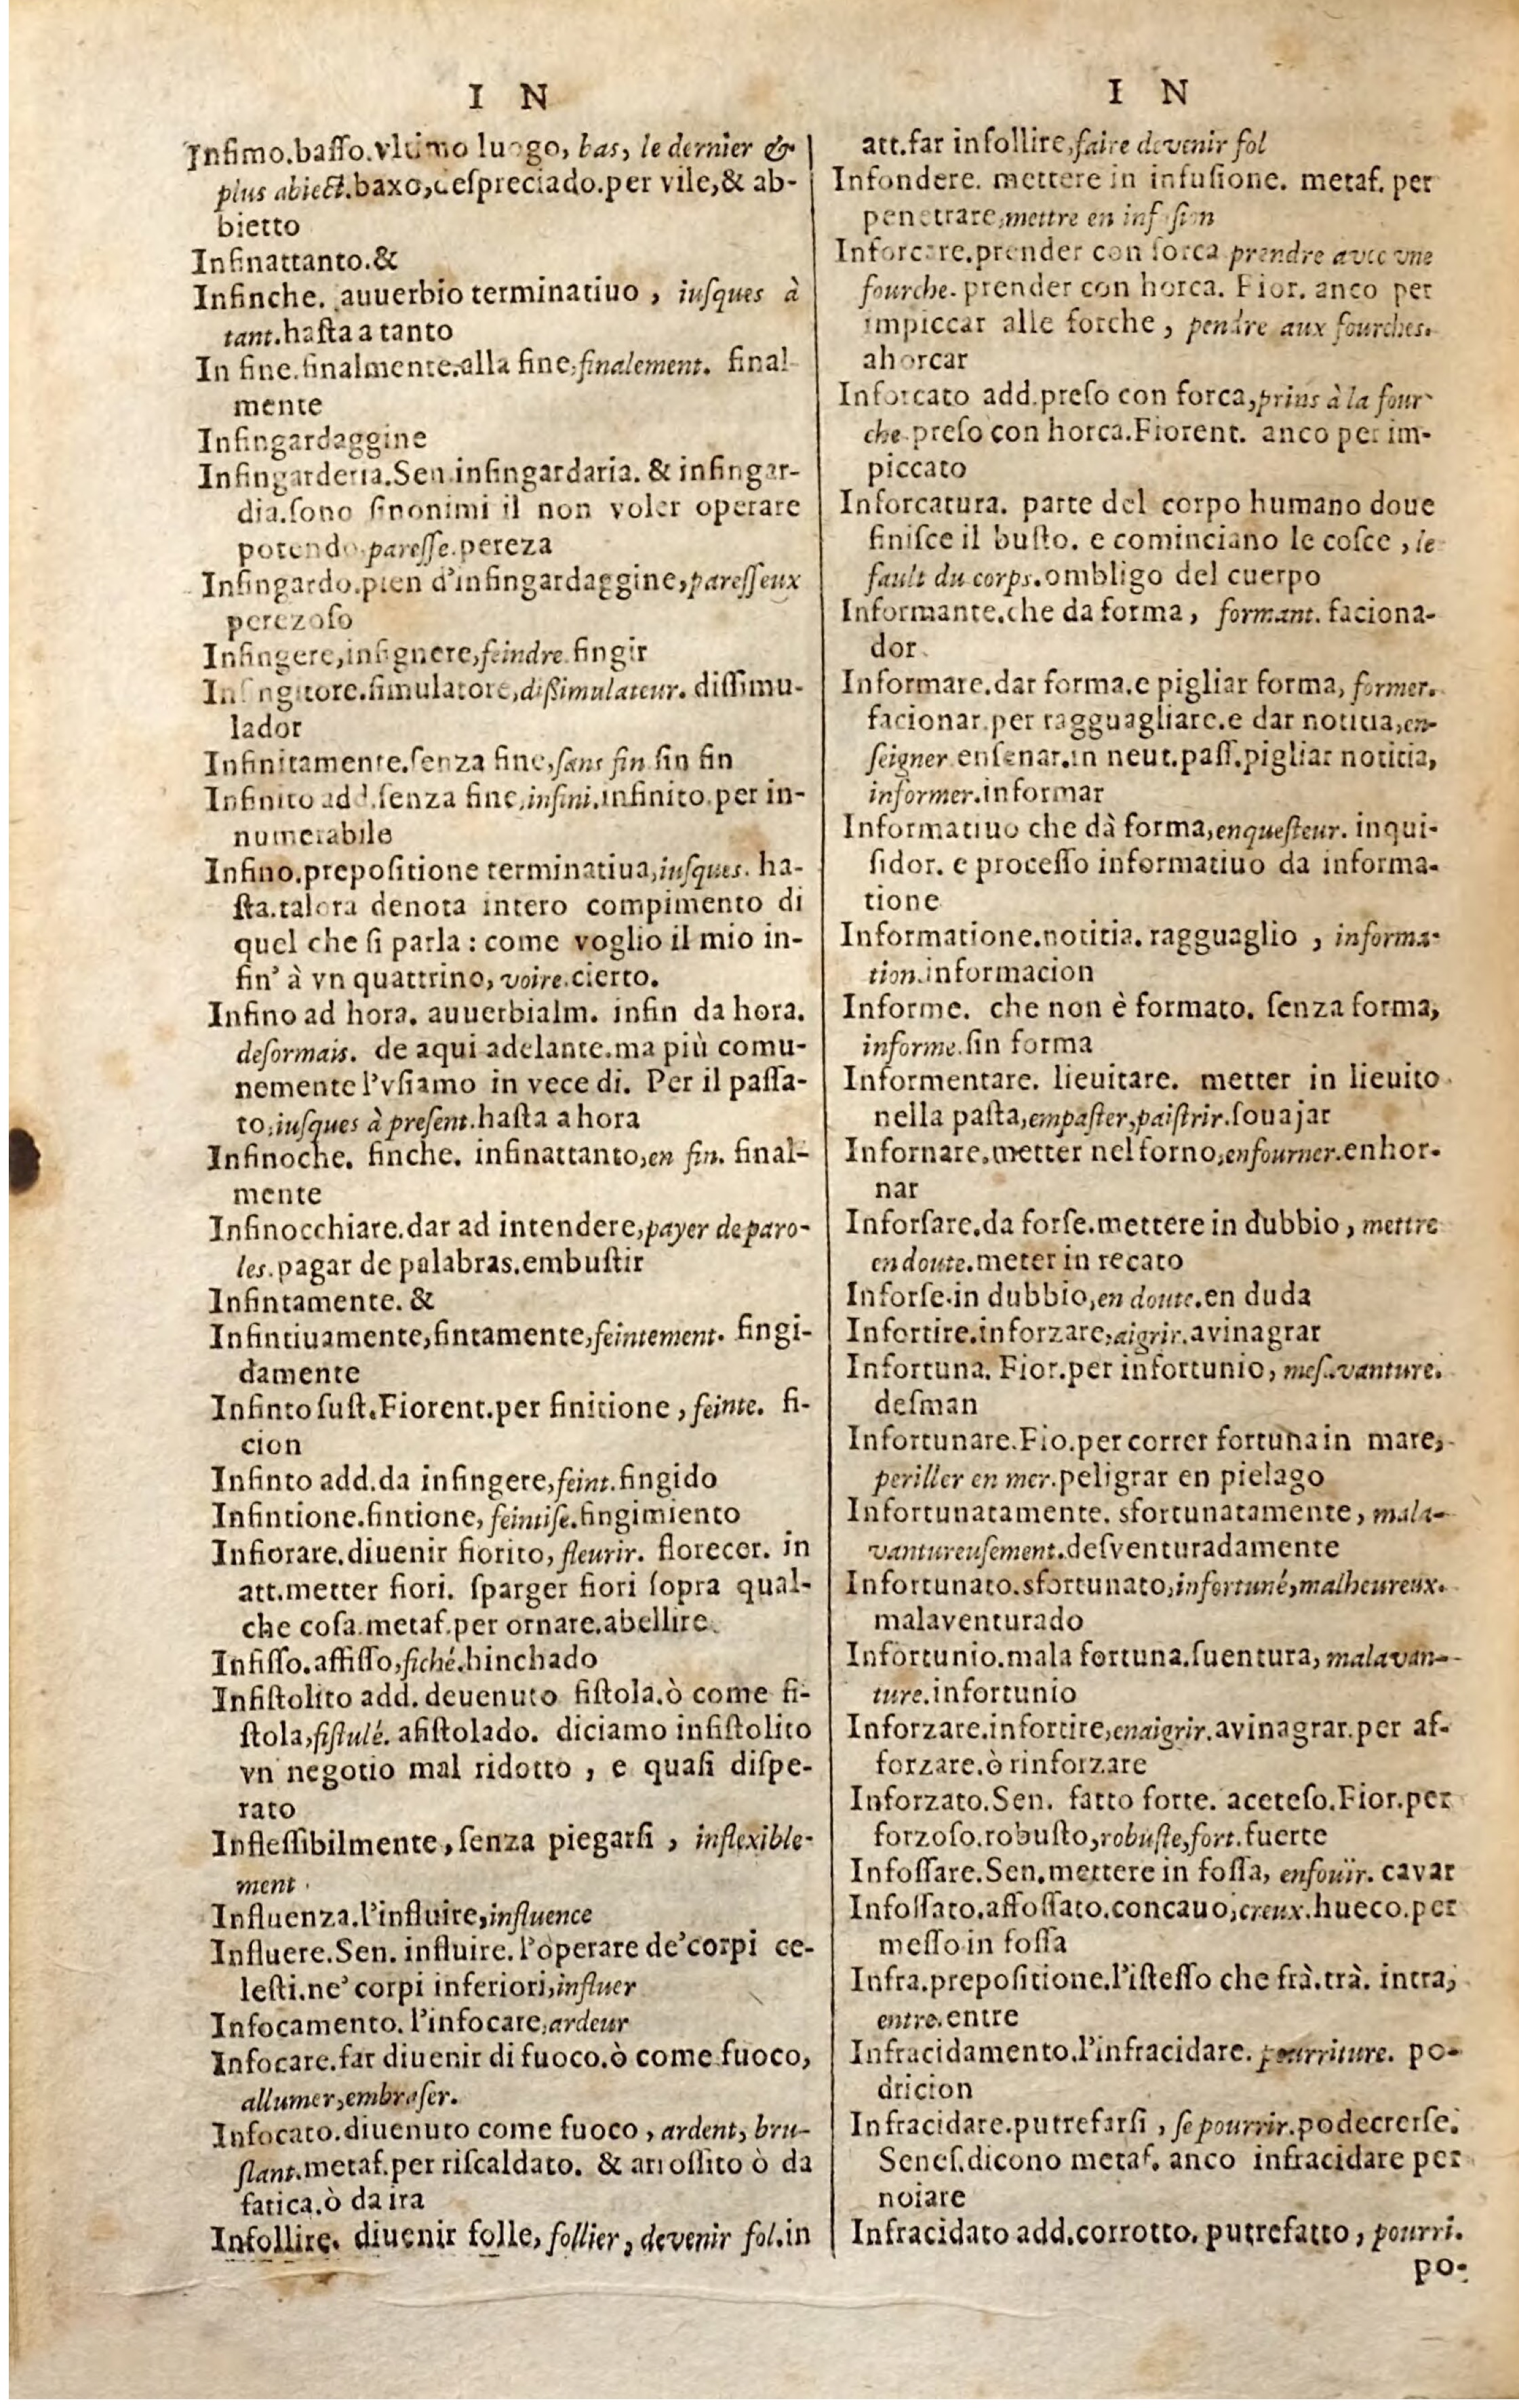 I N
Infimo.baſſo.vltimo luogo, bas, le dernier &
plus abiect.baxo,deſpreciado.per vile,& ab-
bietto
Infinattanto.&
Infinche. auuerbio terminatiuo , iuſques à
tant.haſta a tanto
In fine.finalmente.alla fine,finalement. final-
mente
Infingardaggine
Infingarderia.Sen.infingardaria. & infingar-
dia.ſono ſinonimi il non voler operare
potendo.pareſſe.pereza
Infingardo.pien d'infingardaggine,pareſſeux
perezoſo
Infingere,infignere,feindre.fingir
Infingitore.ſimulatore,diſſimulateur. diſſimu-
lador
Infinitamente.ſenza fine,ſans fin ſin fin
Infinito add.ſenza fine,infini.infinito.per in-
numerabile
Infino.prepoſitione terminatiua,iuſques. ha-
ſta.talora denota intero compimento di
quel che ſi parla : come voglio il mio in-
fin' à vn quattrino, voire.cierto.
Infino ad hora. auuerbialm. infin da hora.
deſormais. de aqui adelante.ma più comu-
nemente l'vſiamo in vece di. Per il paſſa-
to,iuſques à preſent.haſta ahora
Infinoche. finche. infinattanto,en fin. final-
mente
Infinocchiare.dar ad intendere,payer de paro-
les.pagar de palabras.embuſtir
Infintamente. &
Infintiuamente,fintamente,feintement. fingi-
damente
Infinto ſuſt.Fiorent.per finitione , feinte. fi-
cion
Infinto add.da infingere,feint.fingido
Infintione.fintione, feintiſe.fingimiento
Infiorare.diuenir fiorito, fleurir. florecer. in
att.metter fiori. ſparger fiori ſopra qual-
che coſa.metaf.per ornare.abellire.
Infiſſo.affiſſo,fiché.hinchado
Infiſtolito add. deuenuto fiſtola.ò come fi-
ſtola,fiſtulé. afiſtolado. diciamo infiſtolito
vn negotio mal ridotto , e quaſi diſpe-
rato
Infleſſibilmente, ſenza piegarſi , inflexible-
ment.
Influenza.l'influire,influence
Influere.Sen. influire. l'operare de'corpi ce-
leſti.ne' corpi inferiori,influer
Infocamento. l'infocare,ardeur
Infocare.far diuenir di fuoco.ò come fuoco,
allumer,embraſer.
Infocato.diuenuto come fuoco , ardent, bru-
ſlant.metaf.per riſcaldato. & arroſſito ò da
fatica.ò da ira
Infollire. diuenir folle, follier, devenir fol.in
I N
att.far infollire,faire devenir fol
Infondere. mettere in infuſione. metaf. per
penetrare,mettre en infuſion
Inforcare.prender con forca prendre avec vne
fourche. prender con horca. Fior. anco per
impiccar alle forche , pendre aux fourches.
ahorcar
Inforcato add.preſo con forca,prins à la four-
che.preſo con horca.Fiorent. anco per im-
piccato
Inforcatura. parte del corpo humano doue
finiſce il buſto. e cominciano le coſce , le
fault du corps.ombligo del cuerpo
Informante.che da forma , formant. faciona-
dor.
Informare.dar forma.e pigliar forma, former.
facionar.per ragguagliare.e dar notitia,en-
ſeigner enſenar.in neut.paſſ.pigliar notitia,
informer.informar
Informatiuo che dà forma,enqueſteur. inqui-
ſidor. e proceſſo informatiuo da informa-
tione
Informatione.notitia. ragguaglio , informa-
tion.informacion
Informe. che non è formato. ſenza forma,
informe.ſin forma
Informentare. lieuitare. metter in lieuito
nella paſta,empaſter,paiſtrir.ſouajar
Infornare.metter nel forno,enfourner.enhor-
nar
Inforſare.da forſe.mettere in dubbio , mettre
en doute.meter in recato
Inforſe.in dubbio,en doute.en duda
Infortire.inforzare,aigrir.avinagrar
Infortuna. Fior.per infortunio, meſavanture.
deſman
Infortunare.Fio.per correr fortuna in mare,
periller en mer.peligrar en pielago
Infortunatamente. sfortunatamente, mala-
vantureuſement.deſventuradamente
Infortunato.sfortunato,infortuné,malheureux.
malaventurado
Infortunio.mala fortuna.ſuentura, malavan-
ture.infortunio
Inforzare.infortire,enaigrir.avinagrar.per af-
forzare.ò rinforzare
Inforzato.Sen. fatto forte. aceteſo.Fior.per
forzoſo.robuſto,robuſte,fort.fuerte
Infoſſare.Sen.mettere in foſſa, enfouïr. cavar
Infoſſato.affoſſato.concauo,creux.hueco.per
meſſo in foſſa
Infra.prepoſitione.l'iſteſſo che frà.trà. intra,
entre.entre
Infracidamento.l'infracidare. pourriture. po-
dricion
Infracidare.putrefarſi , ſe pourrir.podecrerſe.
Seneſ.dicono metaf. anco infracidare per
noiare
Infracidato add.corrotto. putrefatto , pourri.
po-